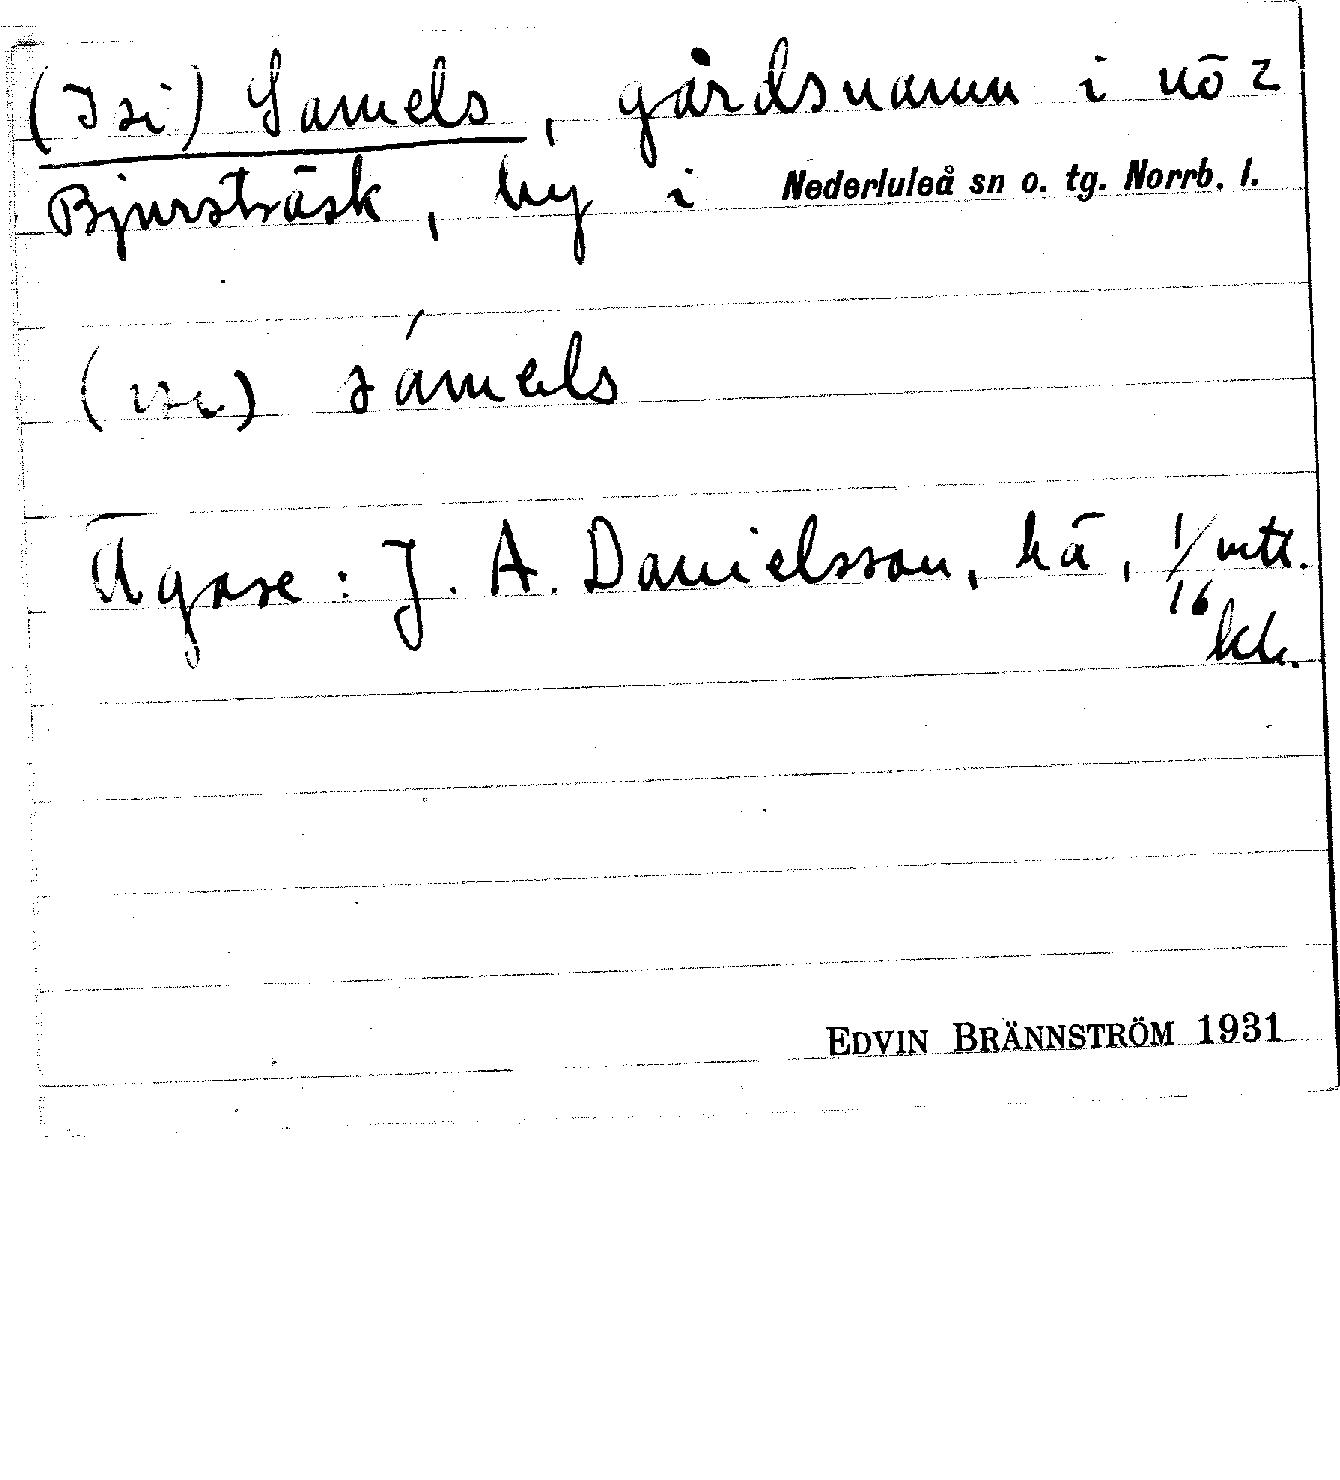 (Isi) Samels, gårdsnamn i nö 2
Bjursträsk, by i Nederluleå sn o. tg. Norrb. l.
(ɩsɩ) sámels
Ägare: J. A. Danielsson, hä, 1/16 mtl.
kr.
EDVIN BRÄNNSTRÖM 1931